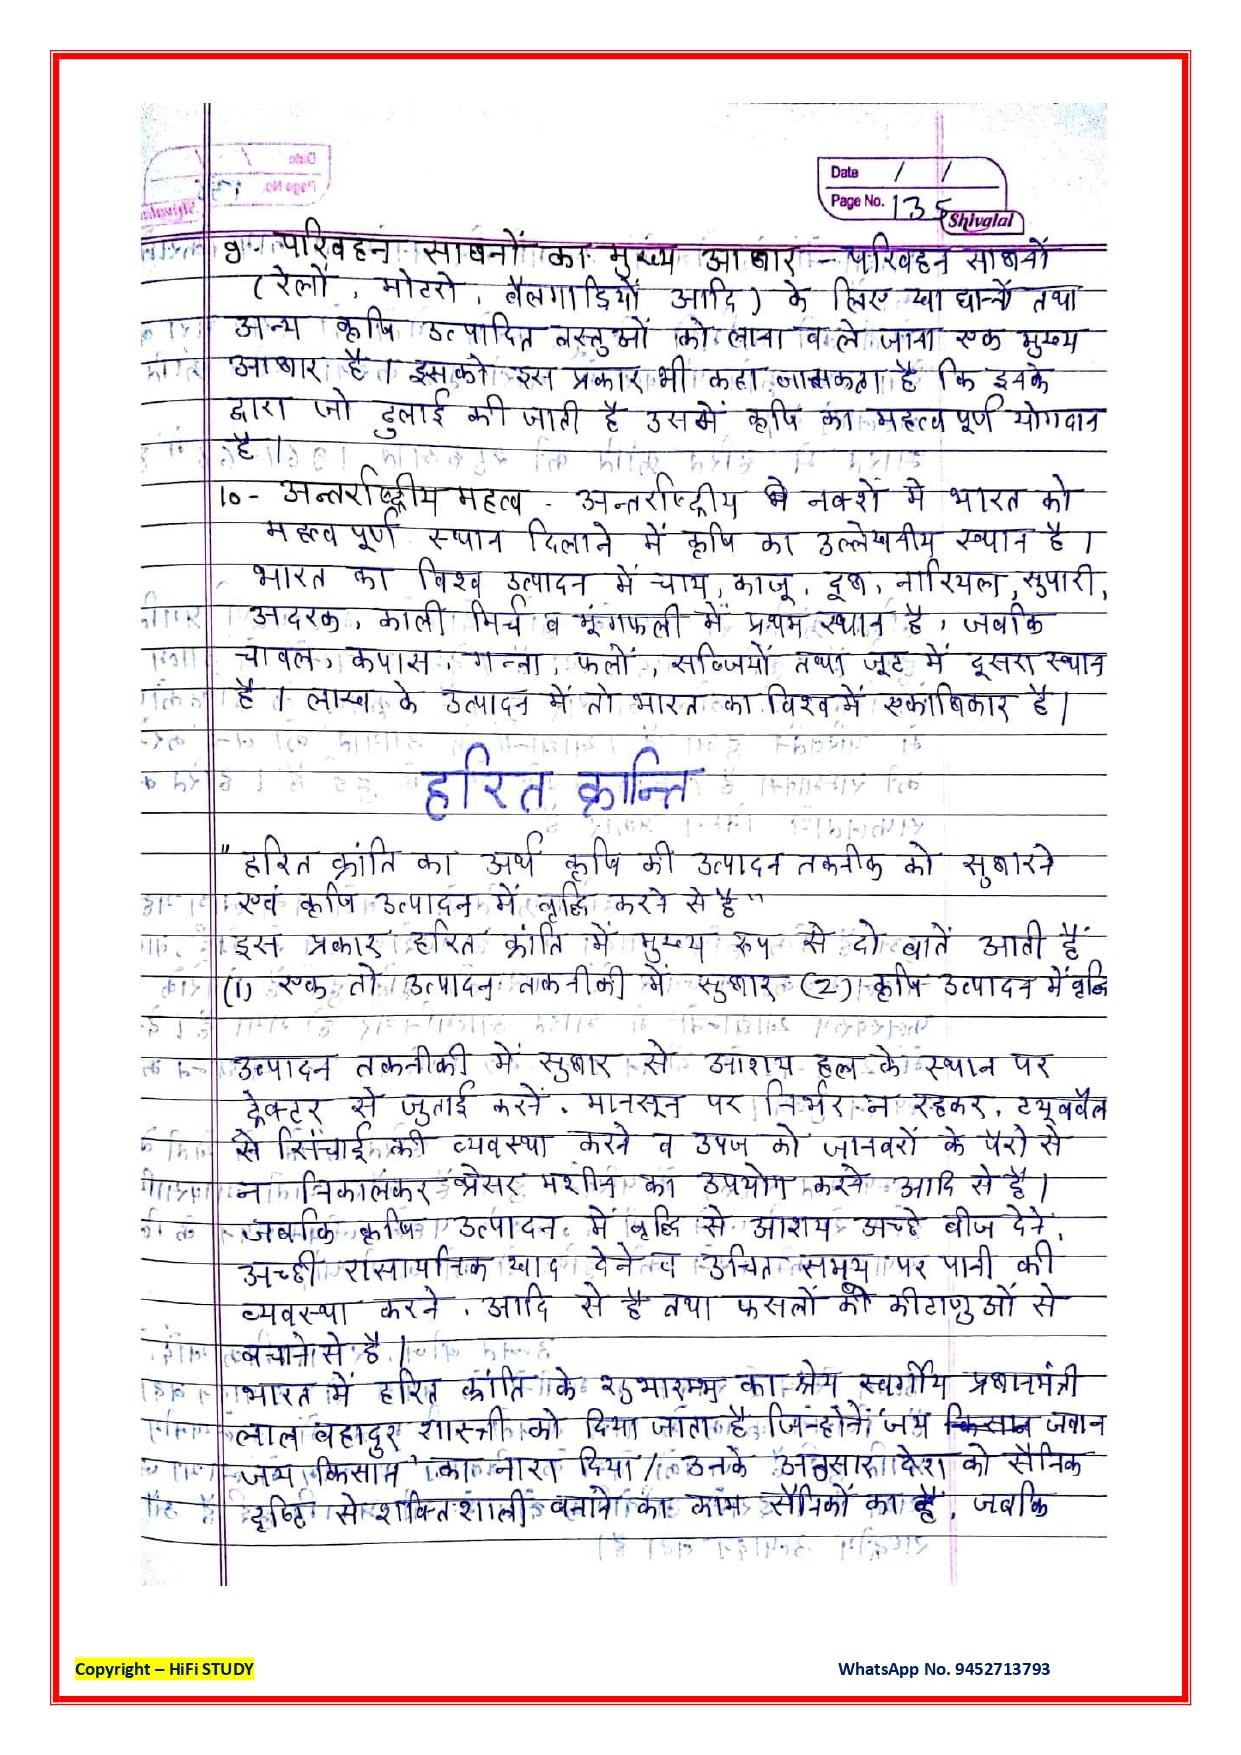 Date / /
Page No. 135
Shivalal
9 - परिवहन साधनों का मुख्य आधार - परिवहन साधनों
(रेलों, मोटरो, बैलगाडियों आदि) के लिए खाद्यान्नों तथा
अन्य कृषि उत्पादित वस्तुओं को लाना व ले जाना एक मुख्य
आधार है। इसको इस प्रकार भी कहा जा सकता है कि इनके
द्वारा जो ढुलाई की जाती है उसमें कृषि का महत्वपूर्ण योगदान
है।
10 - अन्तर्राष्ट्रीय महत्व - अन्तर्राष्ट्रीय नक्शे में भारत को
महत्वपूर्ण स्थान दिलाने में कृषि का उल्लेखनीय स्थान है।
भारत का विश्व उत्पादन में चाय, काजू, दूध, नारियल, सुपारी,
अदरक, काली मिर्च व मूंगफली में प्रथम स्थान है, जबकि
चावल, कपास, गन्ना, फलों, सब्जियों तथा जूट में दूसरा स्थान
है। लाख के उत्पादन में तो भारत का विश्व में एकाधिकार है।
हरित क्रान्ति
"हरित क्रांति का अर्थ कृषि की उत्पादन तकनीक को सुधारने
एवं कृषि उत्पादन में वृद्धि करने से है"
इस प्रकार हरित क्रांति में मुख्य रूप से दो बातें आती हैं
(1) एक तो उत्पादन तकनीकी में सुधार (2) कृषि उत्पादन में वृद्धि
उत्पादन तकनीकी में सुधार से आशय हल के स्थान पर
ट्रेक्टर से जुताई करने, मानसून पर निर्भर न रहकर, टयूबवैल
से सिंचाई की व्यवस्था करने व उपज को जानवरों के पैरो से
न निकालकर थ्रेसर मशीन का उपयोग करने आदि से है।
जबकि कृषि उत्पादन में वृद्धि से आशय अच्छे बीज देने,
अच्छी रासायनिक खाद देने व उचित समय पर पानी की
व्यवस्था करने, आदि से है तथा फसलों की कीटाणुओं से
बचाने से है।
भारत में हरित क्रांति के शुभारम्भ का श्रेय स्वर्गीय प्रधानमंत्री
लाल बहादुर शास्त्री को दिया जाता है जिन्होनें 'जय किसान जवान
जय किसान' का नारा दिया। उनके अनुसार देश को सैनिक
दृष्टि से शक्तिशाली बनाने का काम सैनिकों का है, जबकि
Copyright – HiFi STUDY
WhatsApp No. 9452713793